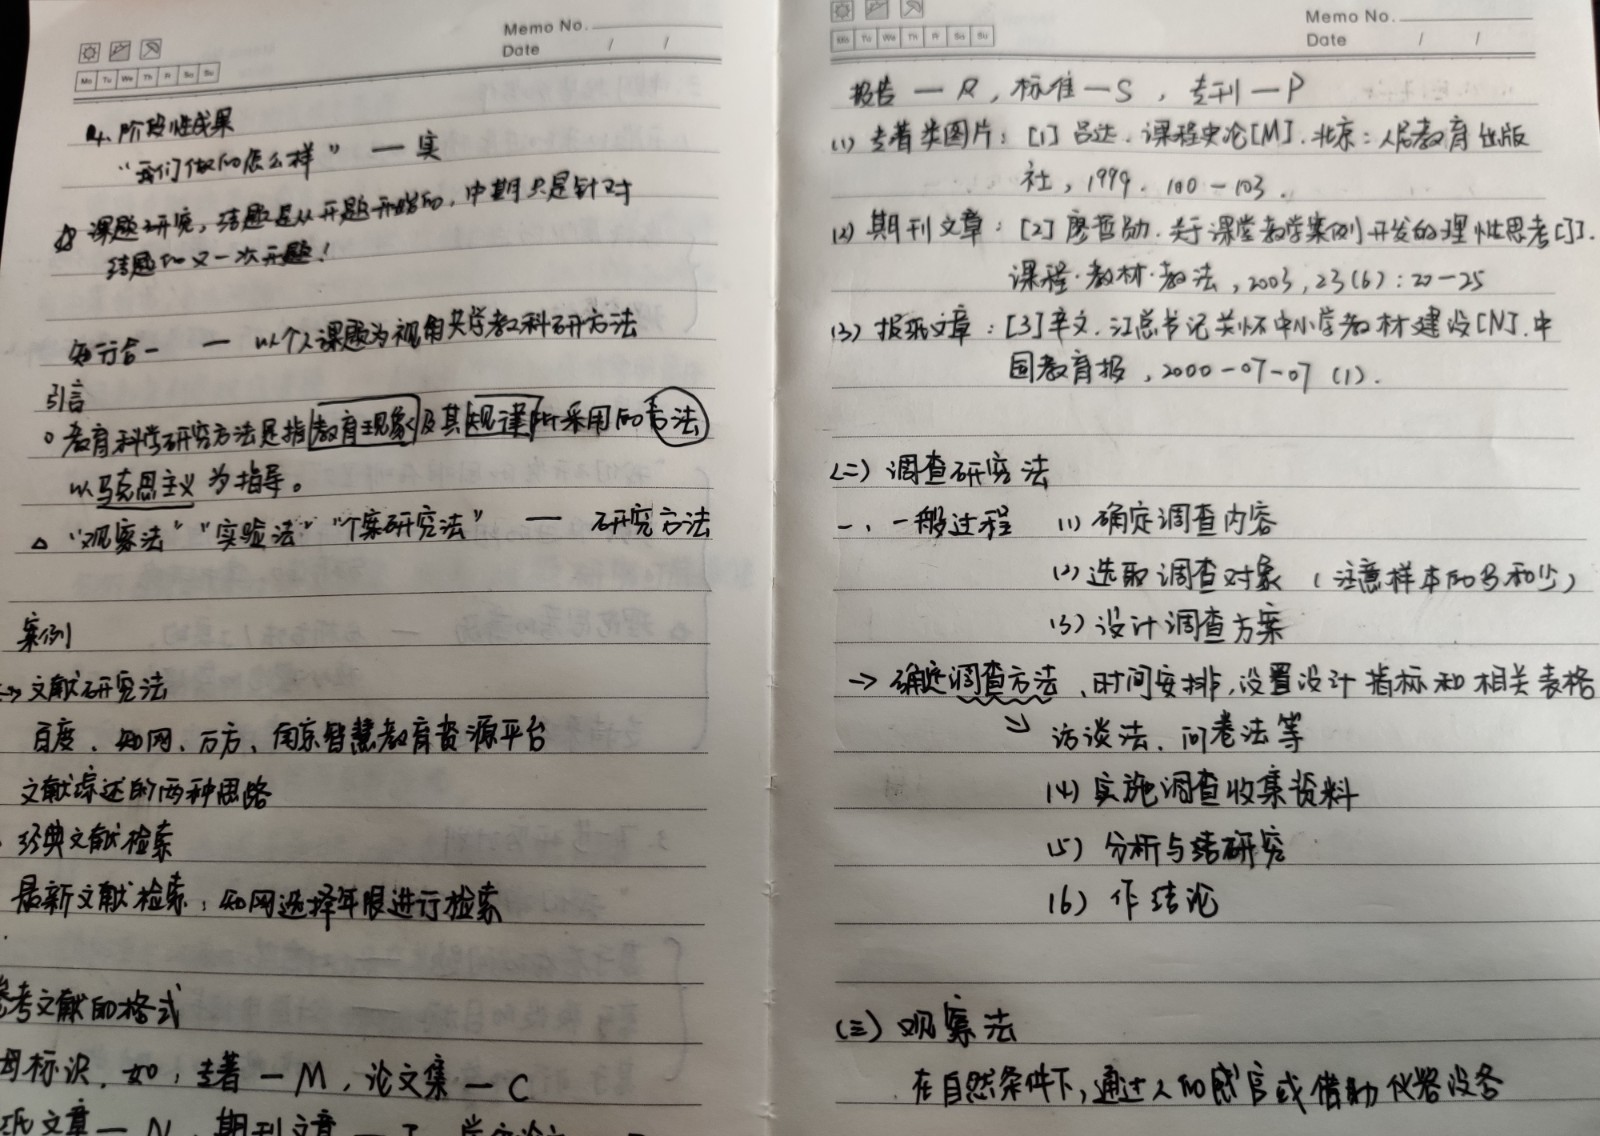 Memo No.
Date / /
Mo Tu We Th Fr Sa Su
4. 阶段性成果
“我们做的怎么样” — 实
☆ 课题研究，结题是从开题开始的，中期只是针对
结题的又一次开题！
知行合一 — 以个人课题为视角共学教科研方法
引言
○ 教育科学研究方法是指教育现象及其规律所采用的方法
以马克思主义为指导。
△ “观察法” “实验法” “个案研究法” — 研究方法
案例
文献研究法
百度、知网、万方、南京智慧教育资源平台
文献综述的两种思路
经典文献检索
最新文献检索：知网选择年限进行检索
参考文献的格式
母标识，如：专著 — M，论文集 — C
纸文章 — N，期刊文章 — J，学位论文
Memo No.
Date / /
Mo Tu We Th Fr Sa Su
报告 — R，标准 — S，专刊 — P
(1) 专着类图片：[1] 吕达．课程史论[M]．北京：人民教育出版
社，1999．100－103．
(2) 期刊文章：[2] 廖哲勋．关于课堂教学案例开发的理性思考[J]．
课程·教材·教法，2003，23(6)：20－25
(3) 报纸文章：[3] 辛文．江总书记关怀中小学教材建设[N]．中
国教育报，2000－07－07 (1)．
(二) 调查研究法
一、一般过程 (1) 确定调查内容
(2) 选取调查对象 (注意样本的多和少)
(3) 设计调查方案
→ 确定调查方法、时间安排，设置设计指标和相关表格
↘ 访谈法、问卷法等
(4) 实施调查收集资料
(5) 分析与结研究
(6) 作结论
(三) 观察法
在自然条件下，通过人的感官或借助仪器设备